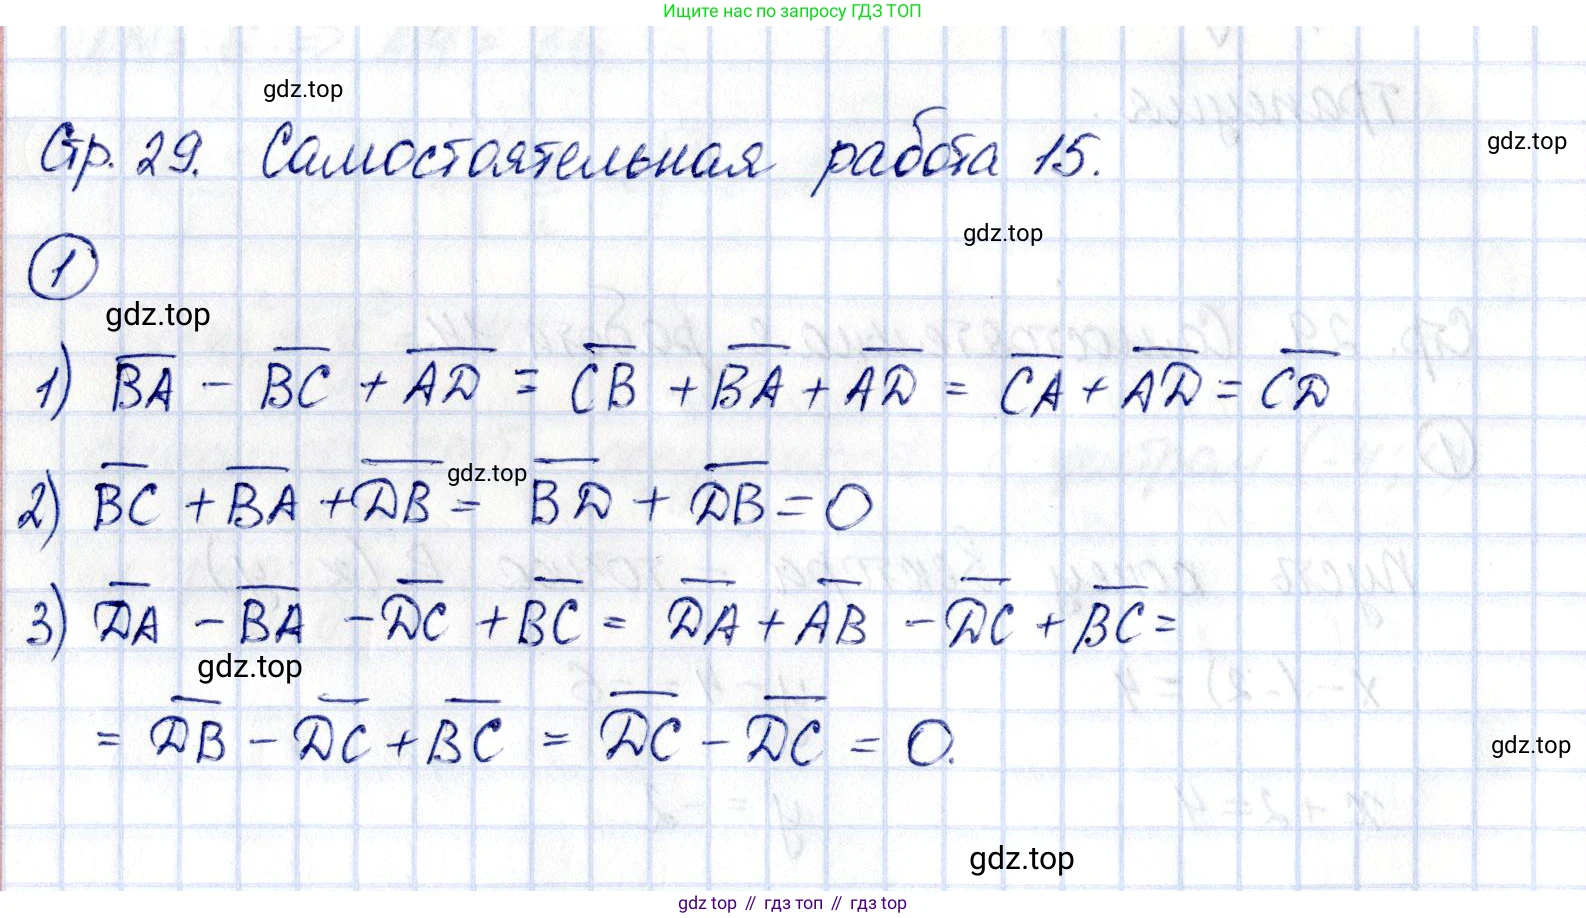 Ищите нас по запросу ГДЗ ТОП
gdz.top
Стр. 29. Самостоятельная работа 15.
gdz.top
gdz.top
1
gdz.top
1) B͞A͞ − B͞C͞ + A͞D͞ = C͞B͞ + B͞A͞ + A͞D͞ = C͞A͞ + A͞D͞ = C͞D͞
2) B͞C͞ + B͞A͞ + D͞B͞ = B͞D͞ + D͞B͞ = 0
gdz.top
3) D͞A͞ − B͞A͞ − D͞C͞ + B͞C͞ = D͞A͞ + A͞B͞ − D͞C͞ + B͞C͞ =
gdz.top
= D͞B͞ − D͞C͞ + B͞C͞ = D͞C͞ − D͞C͞ = 0.
gdz.top
gdz.top
gdz.top // гдз топ // гдз top